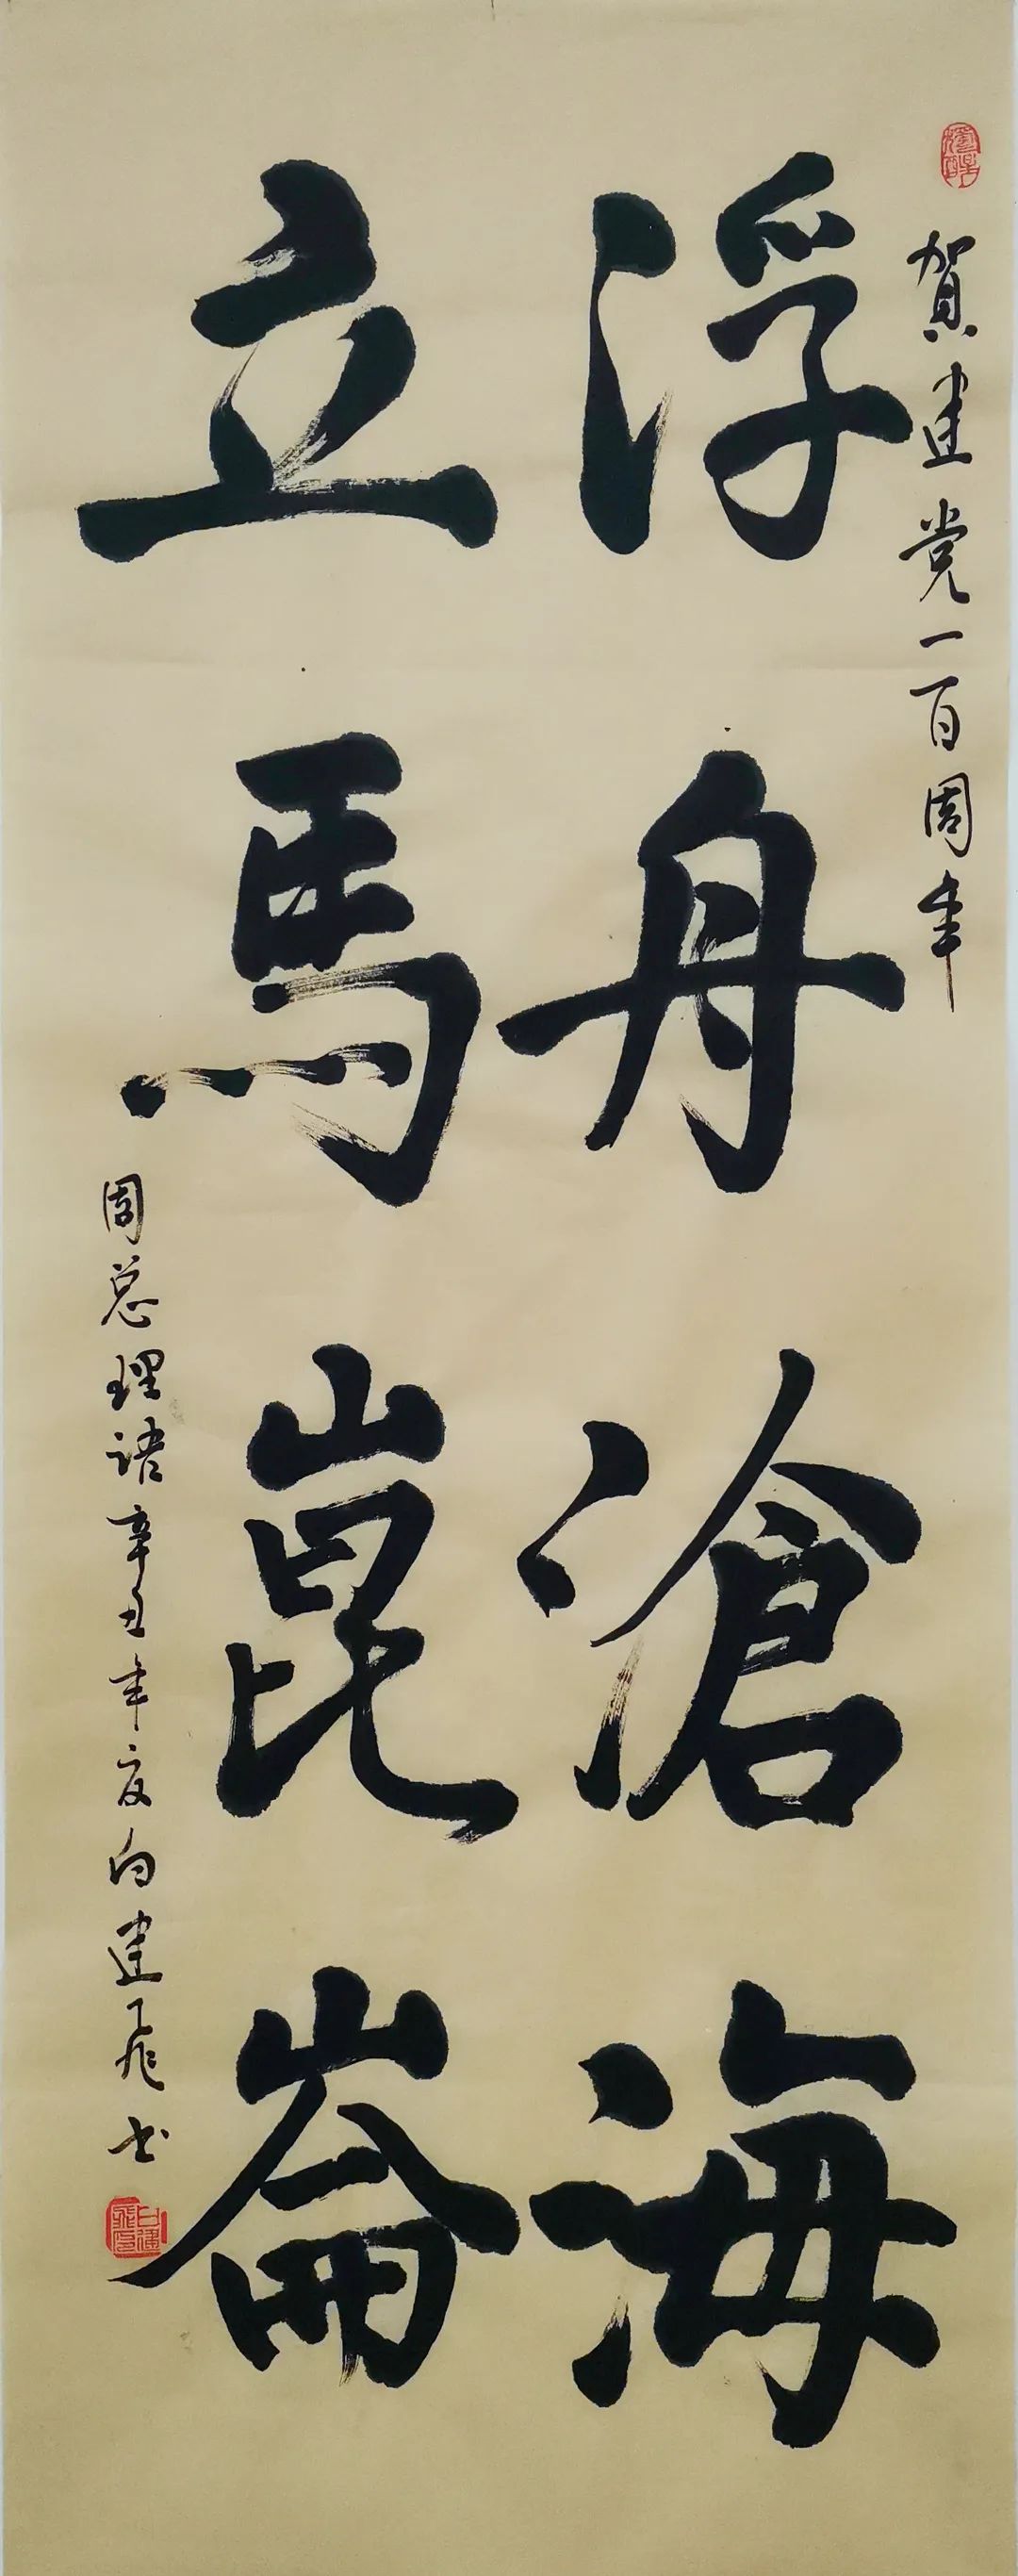 賀建党一百周年
浮舟滄海
立馬崑崙
周总理語辛丑年夏白建飛书